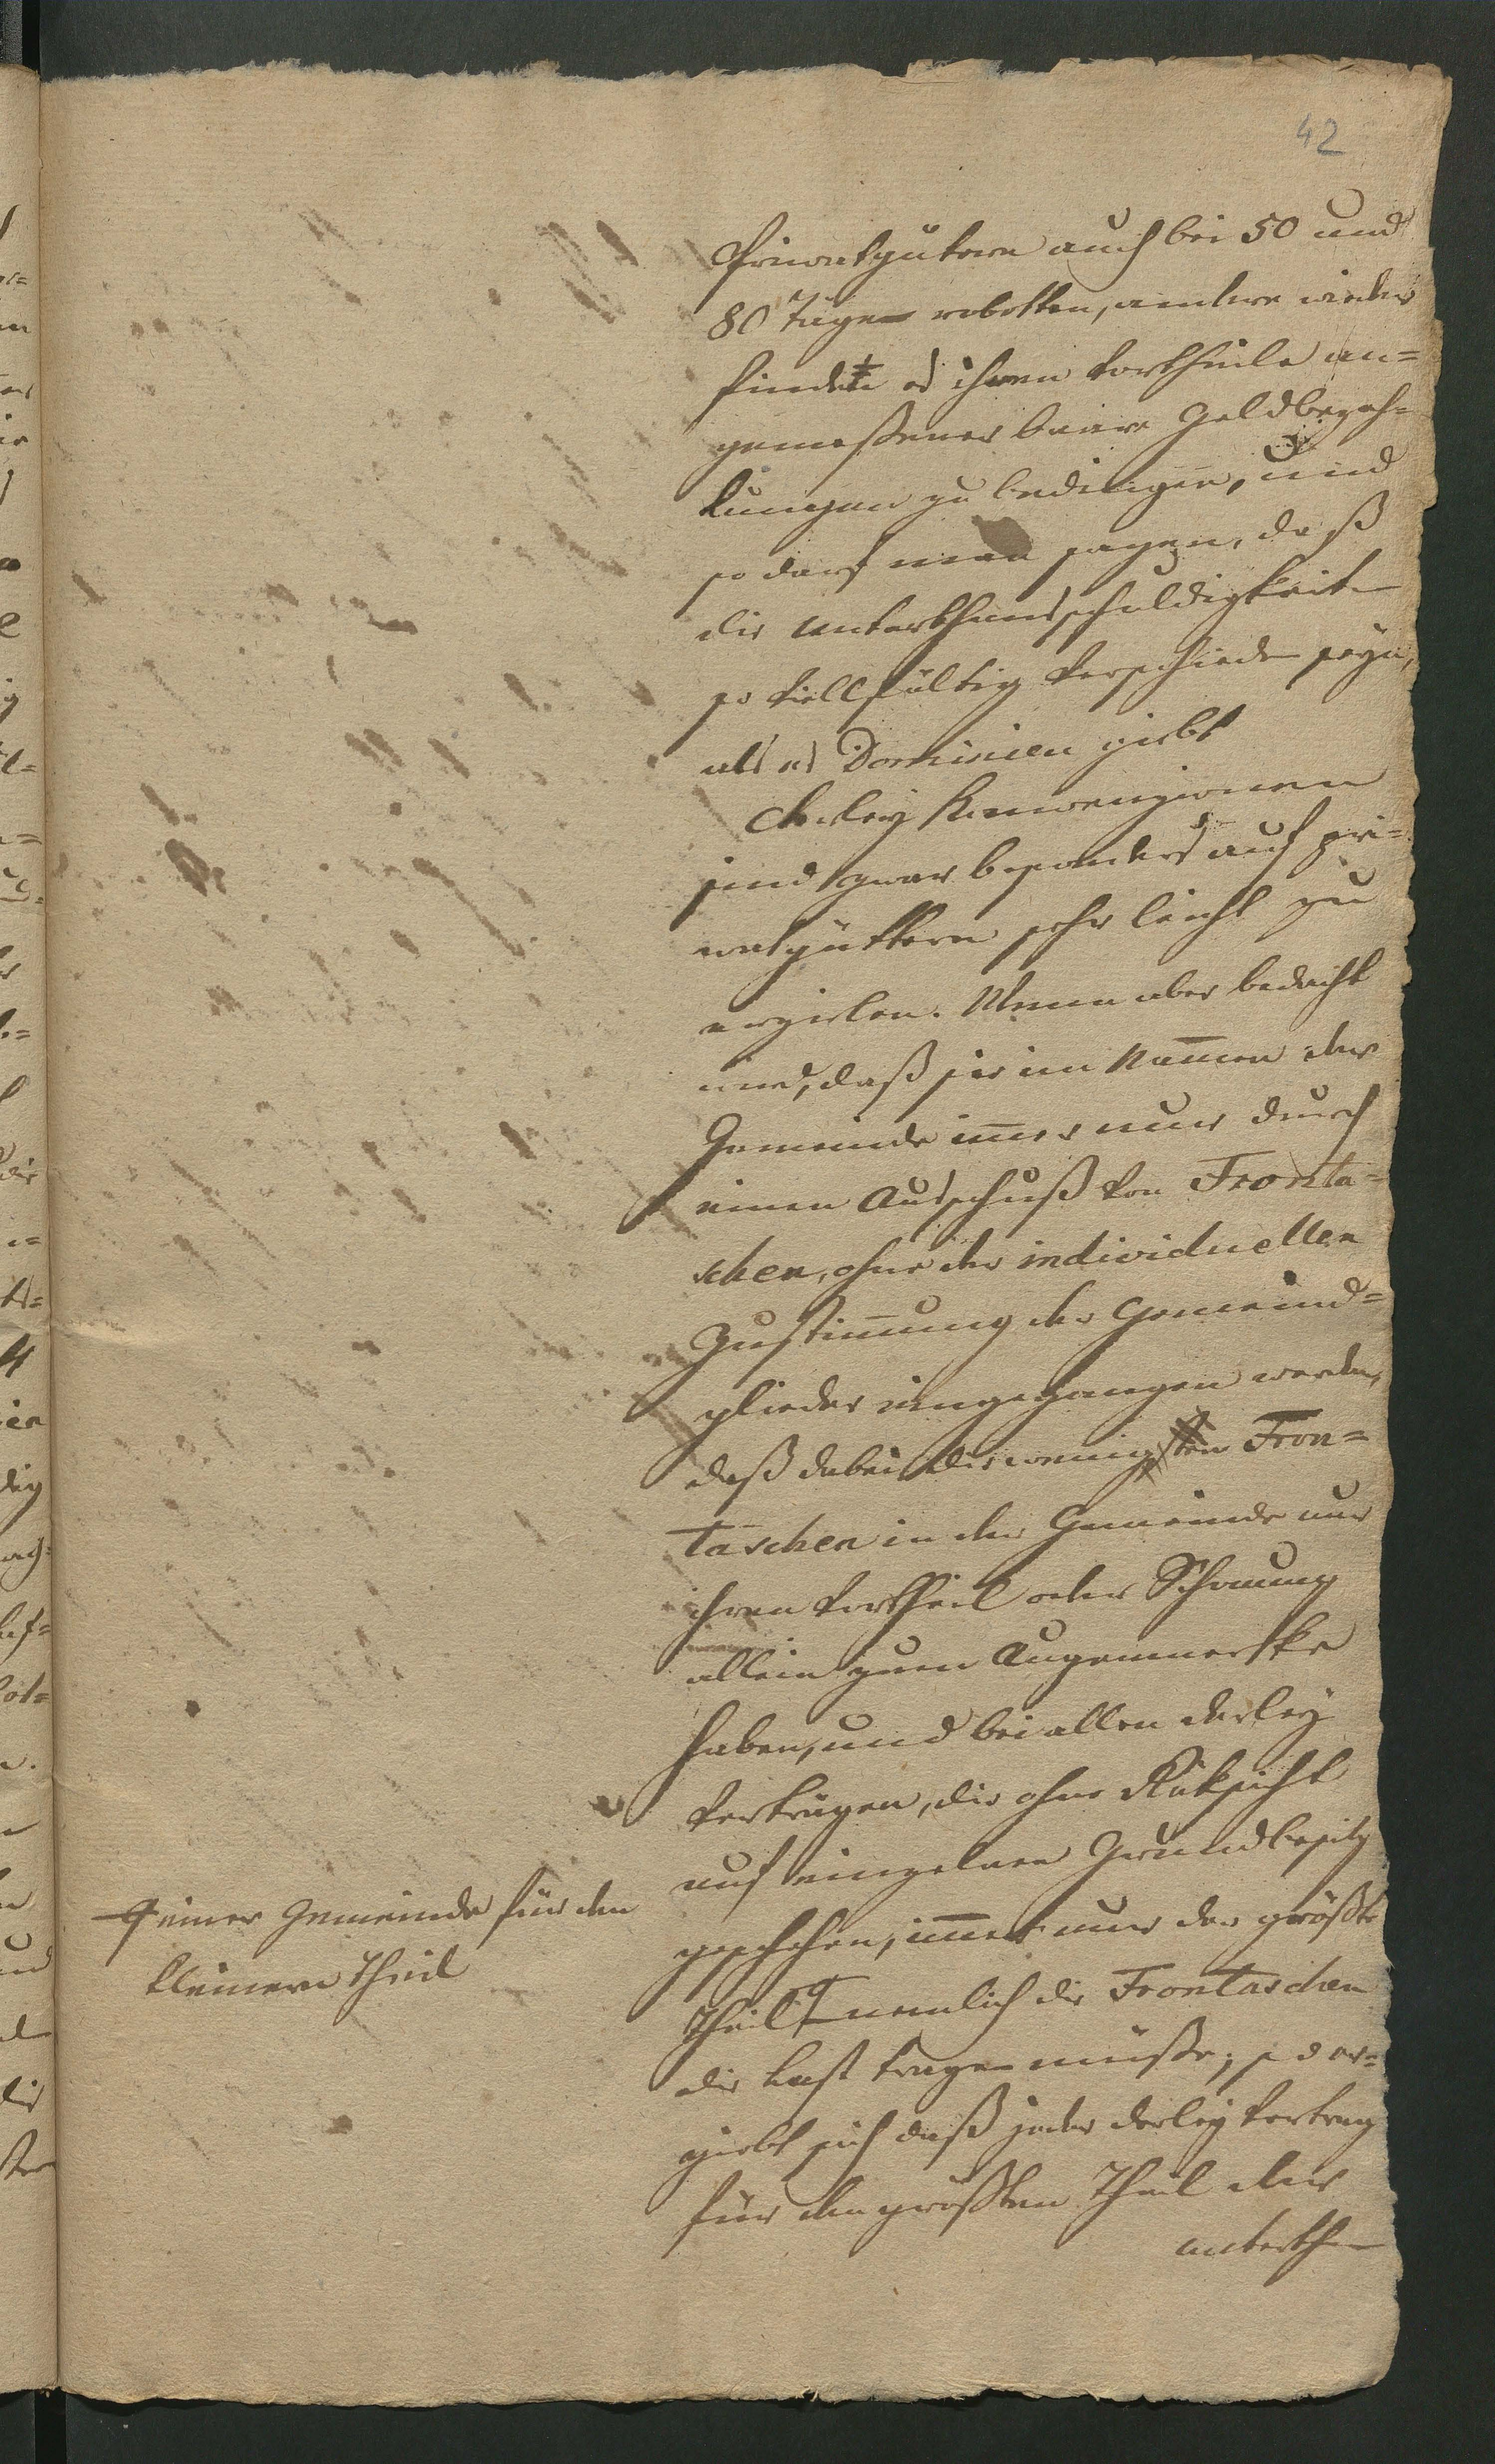 42
Privatgütern auch bei 50 und
80 Tägen robotten, andere wieder
findet es ihrem Vortheile an-
gemeßener baare Geldbezah-
lungen zu bedingen, und
so darf man sagen, daß
die Unterthansschuldigkeiten
so vielfältig verschieden seyn,
als es Dominien giebt
Derley Konvenzionen
sind zwar besonders auf pri-
vatgüttern sehr leicht zu
erzielen. Wenn aber bedacht
wird, daß sie im Nam̅en der
Gemeinde im̅er nur durch
einen Ausschuß von Fronta-
schen, ohne der individuellen
Zustim̅ung der Gemeind-
glieder eingegangen werden,
daß dabei die wenigen Fron-
taschen in der Gemeinde nur
ihren Vortheil oder Schonung
allein zum Augenmerke
haben, und bei allen derley
Verträgen, die ohne Rüksicht
auf einzelnen Grundbesitz
geschehen, im̅er nur der größte
Theil nemlich die Frontaschen
die Last tragen müßte; so er-
giebt sich daß jeder derley Vertrag
für den größten Theil der
Unterthan
einer Gemeinde für den
kleinern Theil